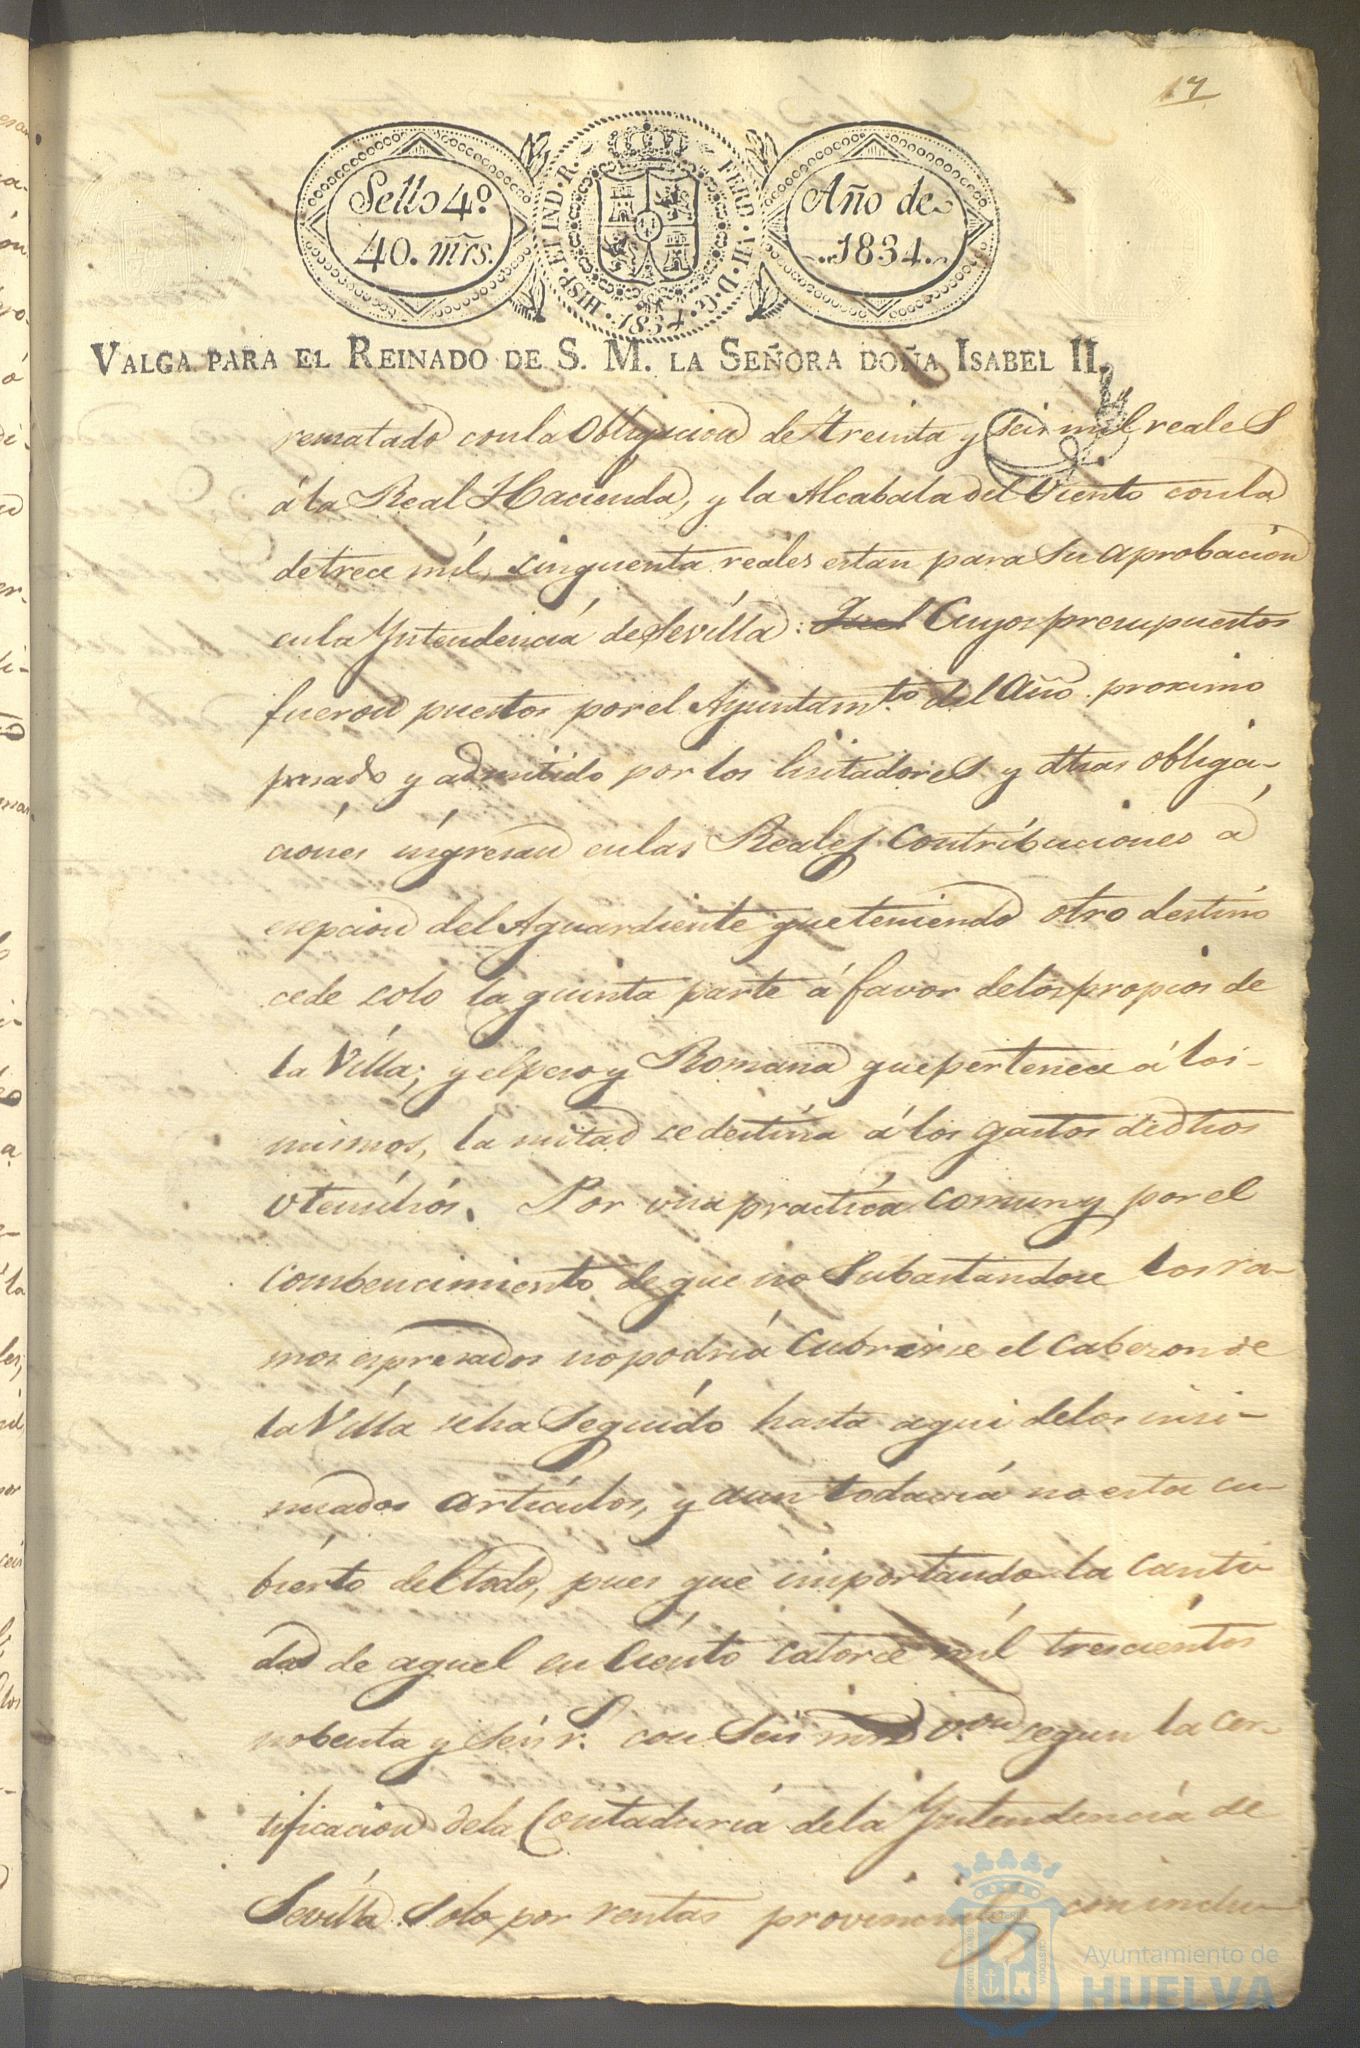 17
Sello 4º
40. mrs.
HISP. ET IND. R.
FERD. VII. D. G.
1834
Año de
1834.
VALGA PARA EL REINADO DE S. M. LA SEÑORA DOÑA ISABEL II.
rematado con la Obligacion de treinta y seis mil reales
á la Real Hacienda, y la Alcabala del Viento con la
de trece mil, cinquenta reales estan para su aprobacion
en la Yntendencia de Sevilla: Cuyos presupuestos
fueron puestos por el Ayuntamto. del Año proximo
pasado y admitido por los lisitadores y dthas obliga-
ciones ingresan en las Reales Contribuciones á
esepcion del Aguardiente que teniendo otro destino
cede solo la quinta parte á favor de los propios de
la Villa; y el peso y Romana que pertenece á los-
mismos, la mitad se destina á los gastos de dthos
Utencilios. Por una practica comun y por el
combencimiento de que no Subastandose los ra-
mos espresados no podria Cubrirse el Cabezon de
la Villa se ha Seguido hasta aqui de los insi-
nuados articulos, y aun todavia no esta cu-
bierto del todo, pues que importando la canti-
dad de aquel en Ciento catorce mil trescientos
nobenta y seis r.s con Seis mrs v.on segun la cer-
tificacion de la Contaduria de la Yntendencia de
Sevilla solo por rentas provinciales con inclu-
Ayuntamiento de
HUELVA